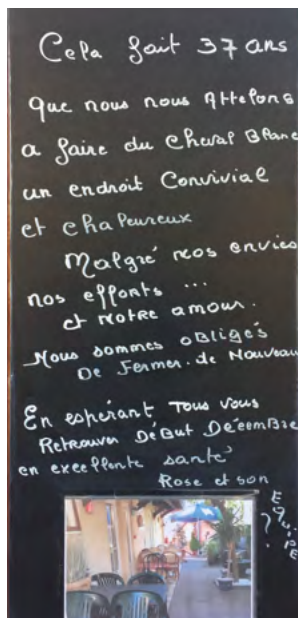 Cela fait 37 ans
que nous nous Attelons
a faire du Cheval Blanc
un endroit Convivial
et chaleureux
Malgré nos envies
nos efforts ...
et notre amour.
Nous sommes obligés
De Fermer de Nouveau
En espérant Tous vous
Retrouver Début Décembre
en excellente santé
Rose et son
EQUIPE